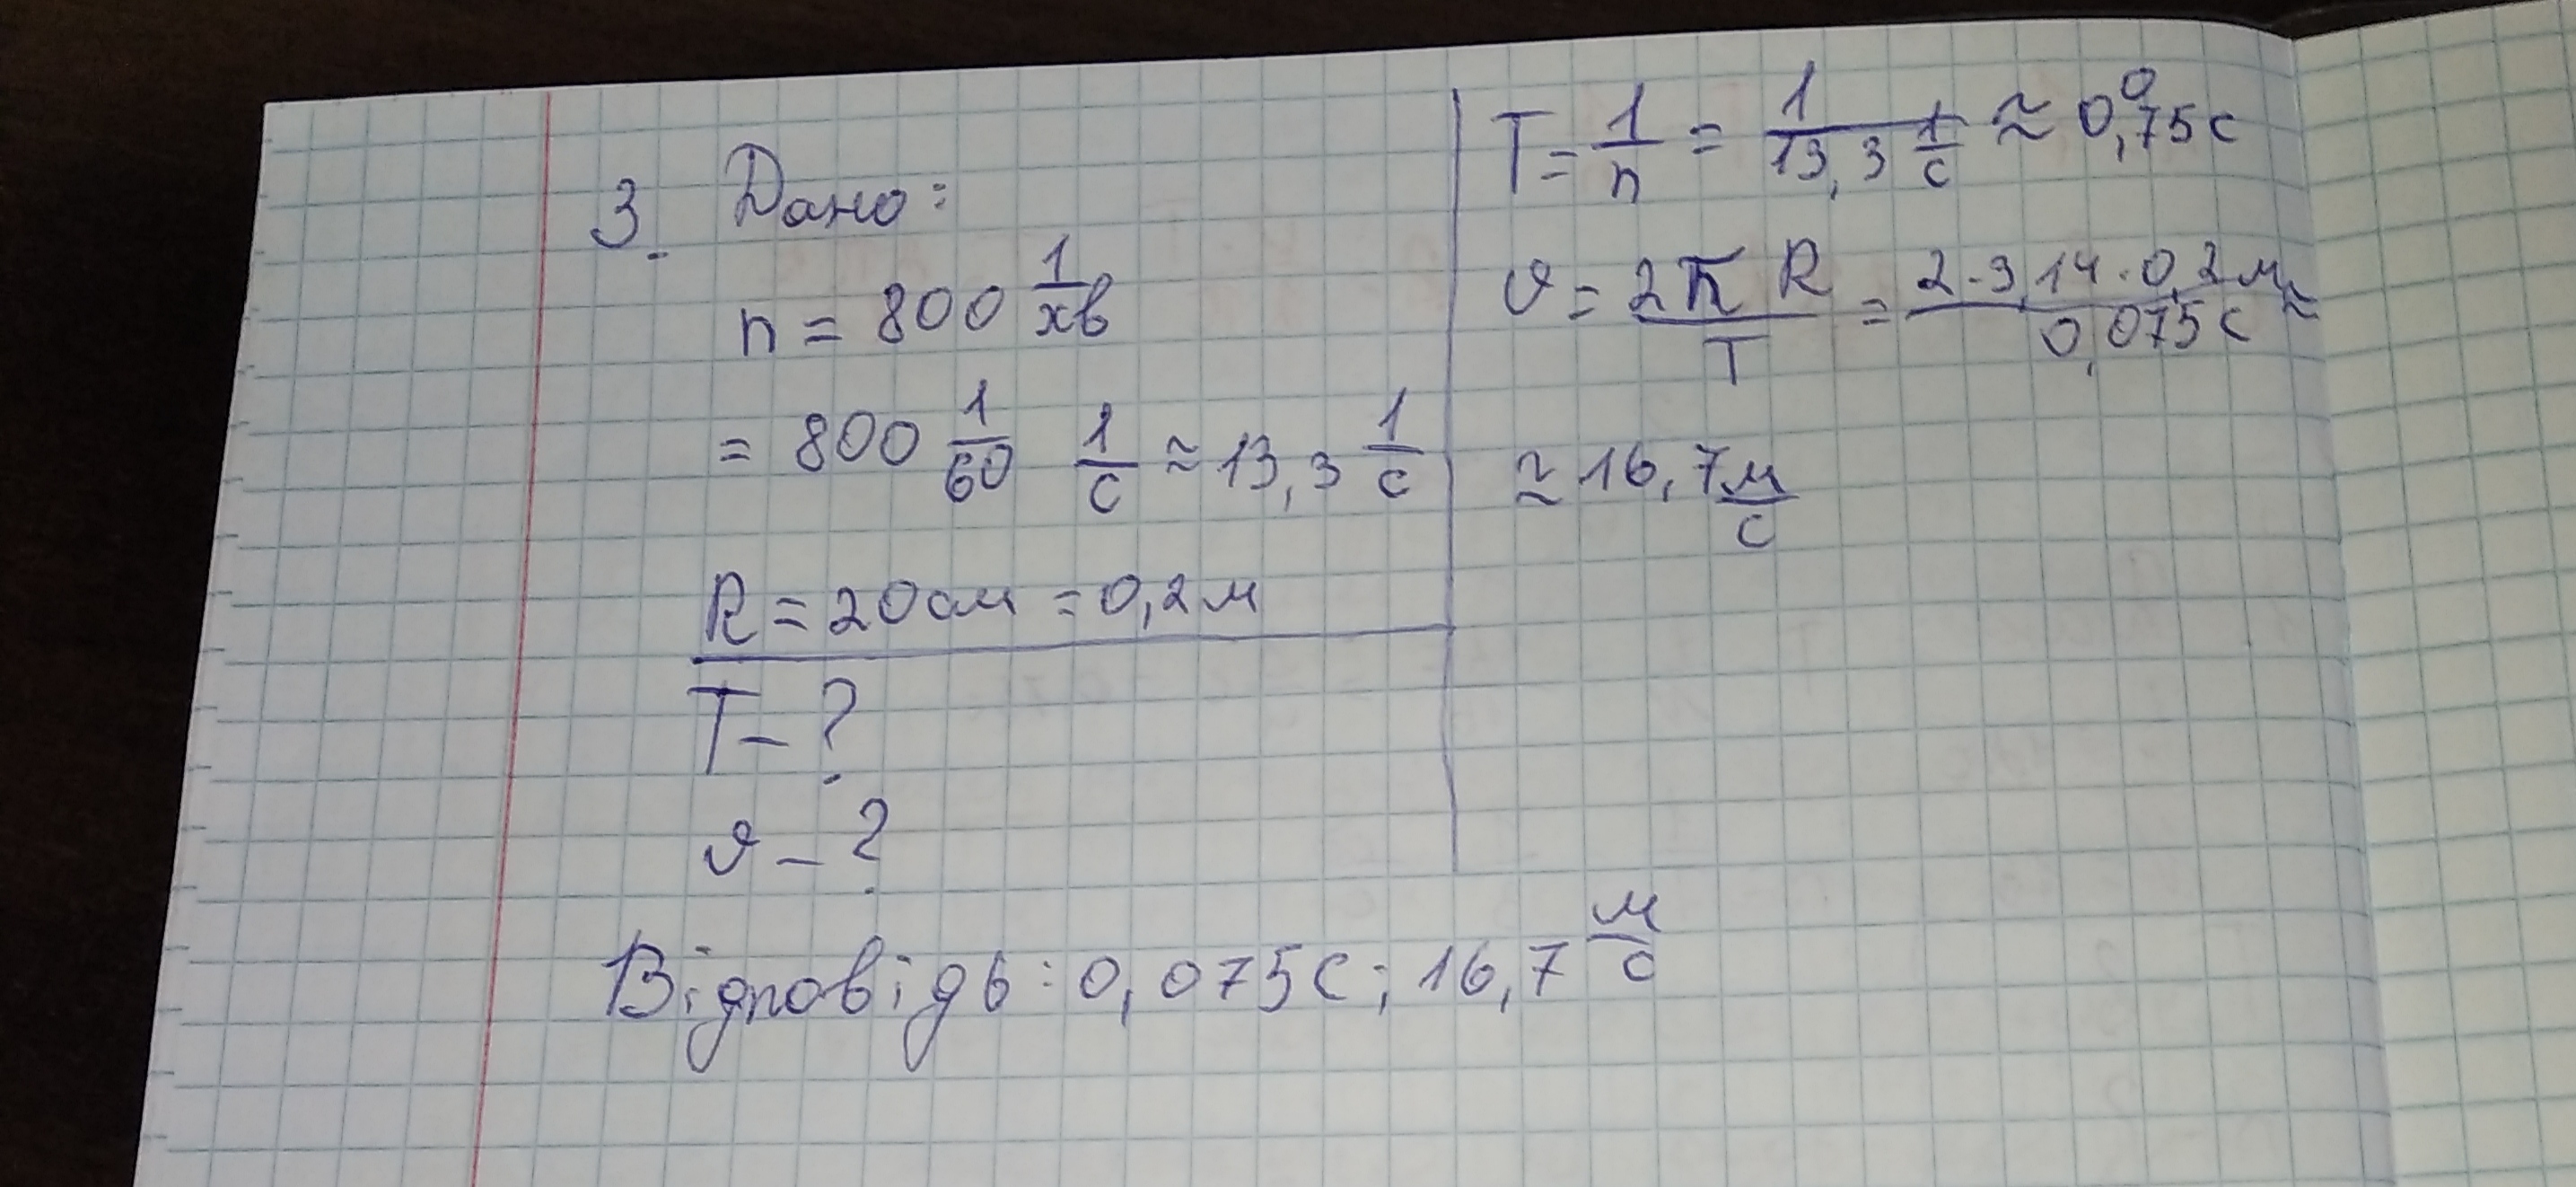 3. Дано:
n = 800 1/хв
= 800 1/60 1/с ≈ 13,3 1/с
R = 20 см = 0,2 м
T – ?
υ – ?
T = 1/n = 1/(13,3 1/с) ≈ 0,075 с
υ = 2πR/T = (2·3,14·0,2 м)/(0,075 с) ≈
≈ 16,7 м/с
Відповідь: 0,075 с; 16,7 м/с